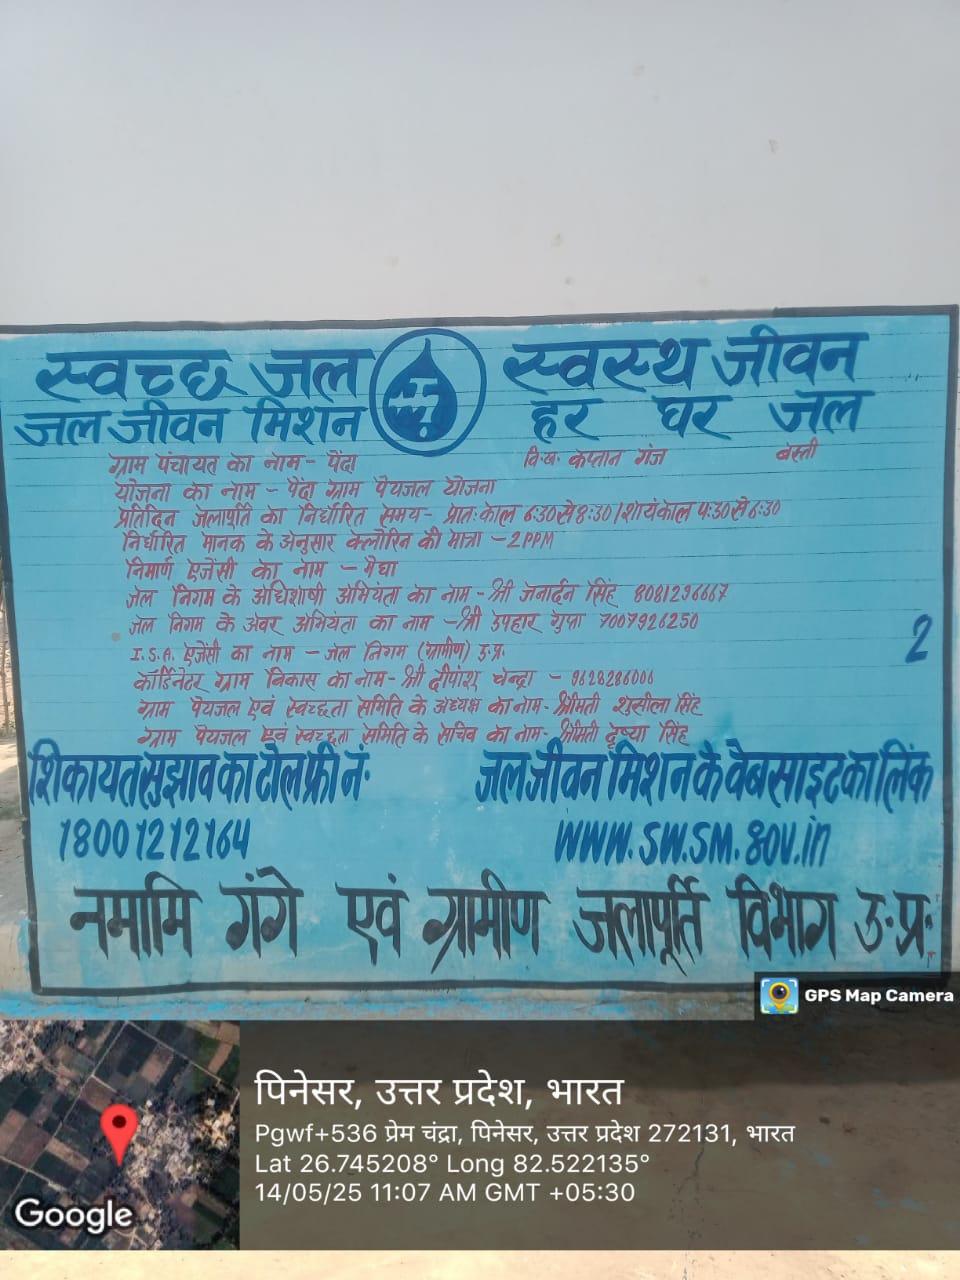 स्वच्छ जल स्वस्थ जीवन
जल जीवन मिशन हर घर जल
ग्राम पंचायत का नाम - पेंदा वि.ख. कप्तान गंज बस्ती
योजना का नाम - पेंदा ग्राम पेयजल योजना
प्रतिदिन जलापूर्ति का निर्धारित समय - प्रातःकाल 6:30 से 8:30 / शायंकाल 4:30 से 6:30
निर्धारित मानक के अनुसार क्लोरिन की मात्रा - 2 PPM
निमार्ण ऐजेंसी का नाम - मेघा
जल निगम के अधिशाषी अभियंता का नाम - श्री जनार्दन सिंह 8081296667
जल निगम के अवर अभियंता का नाम - श्री उपहार गुप्ता 7007926250
I.S.A. ऐजेंसी का नाम - जल निगम (ग्रामीण) उ.प्र.
2
कॉर्डिनेटर ग्राम विकास का नाम - श्री दीपांशु चन्द्रा - 9628286006
ग्राम पेयजल एवं स्वच्छता समिति के अध्यक्ष का नाम - श्रीमती शुसीला सिंह
ग्राम पेयजल एवं स्वच्छता समिति के सचिव का नाम - श्रीमती दृष्या सिंह
शिकायत सुझाव का टोल फ्री नं. जल जीवन मिशन के वेबसाइट का लिंक
18001212164 WWW.SW.SM.gov.in
नमामि गंगे एवं ग्रामीण जलापूर्ति विभाग उ.प्र.
GPS Map Camera
पिनेसर, उत्तर प्रदेश, भारत
Pgwf+536 प्रेम चंद्रा, पिनेसर, उत्तर प्रदेश 272131, भारत
Lat 26.745208° Long 82.522135°
14/05/25 11:07 AM GMT +05:30
Google